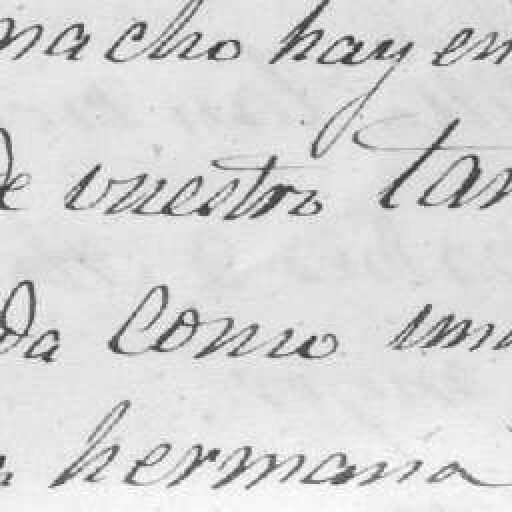 macho hay en
de vuestro tan
da como una
hermana